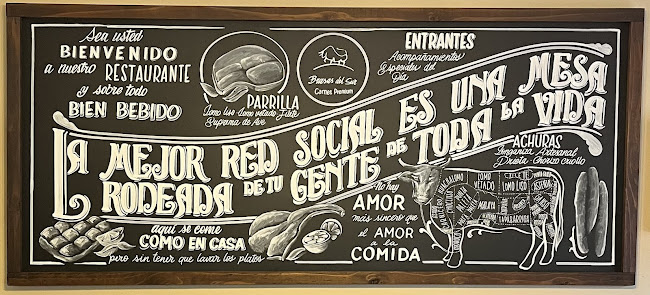 Sea usted
BIENVENIDO
a nuestro RESTAURANTE
y sobre todo
BIEN BEBIDO
PARRILLA
Lomo liso Lomo vetado Filete
Suprema de Ave
Brasas del Sur
Carnes Premium
ENTRANTES
Acompañamientos
Especiales del
Día
LA MEJOR RED SOCIAL ES UNA MESA
RODEADA DE TU GENTE DE TODA LA VIDA
ACHURAS
Longaniza Artesanal
Prieta Chorizo criollo
aquí se come
COMO EN CASA
pero sin tener que lavar los platos
No hay
AMOR
más sincero que
el AMOR
a la
COMIDA
LOMO
VETADO
LOMO LISO
MALAYA